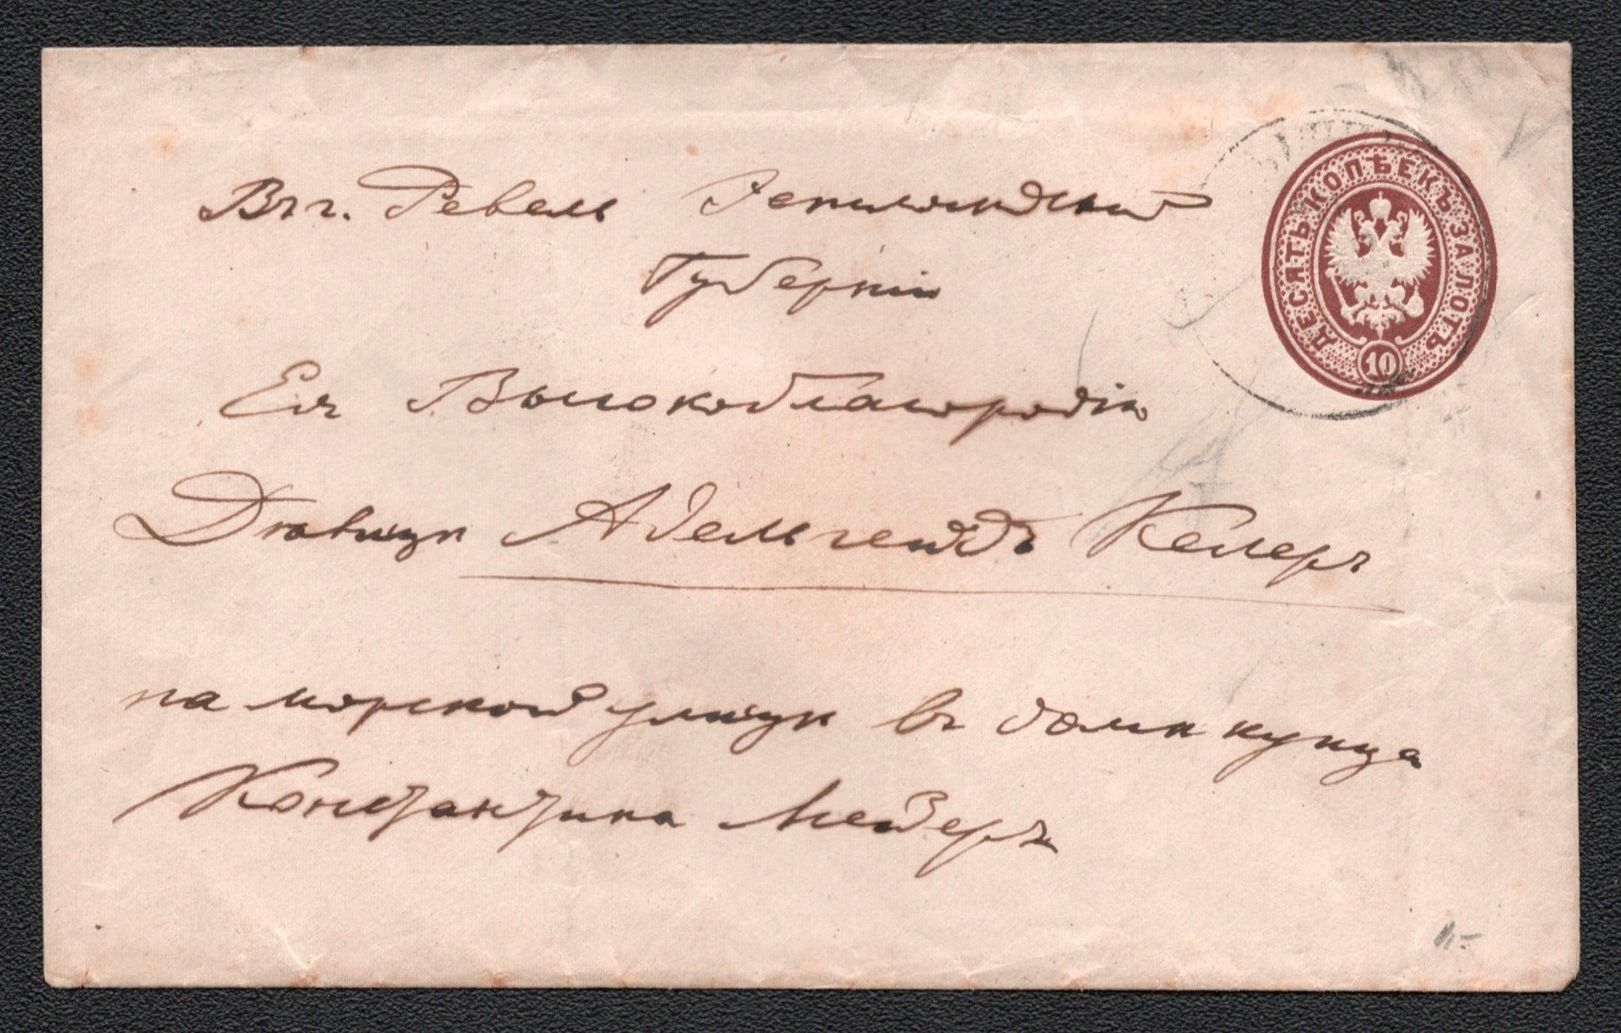 Въ г. Ревель Эстляндской
Губерніи
Ея Высокоблагородію
Дѣвицѣ Адельгейдъ Келеръ
на морской улицѣ въ домѣ купца
Константина Мейеръ
ДЕСЯТЬ КОПѢЕКЪ ЗА ЛОТЪ
10